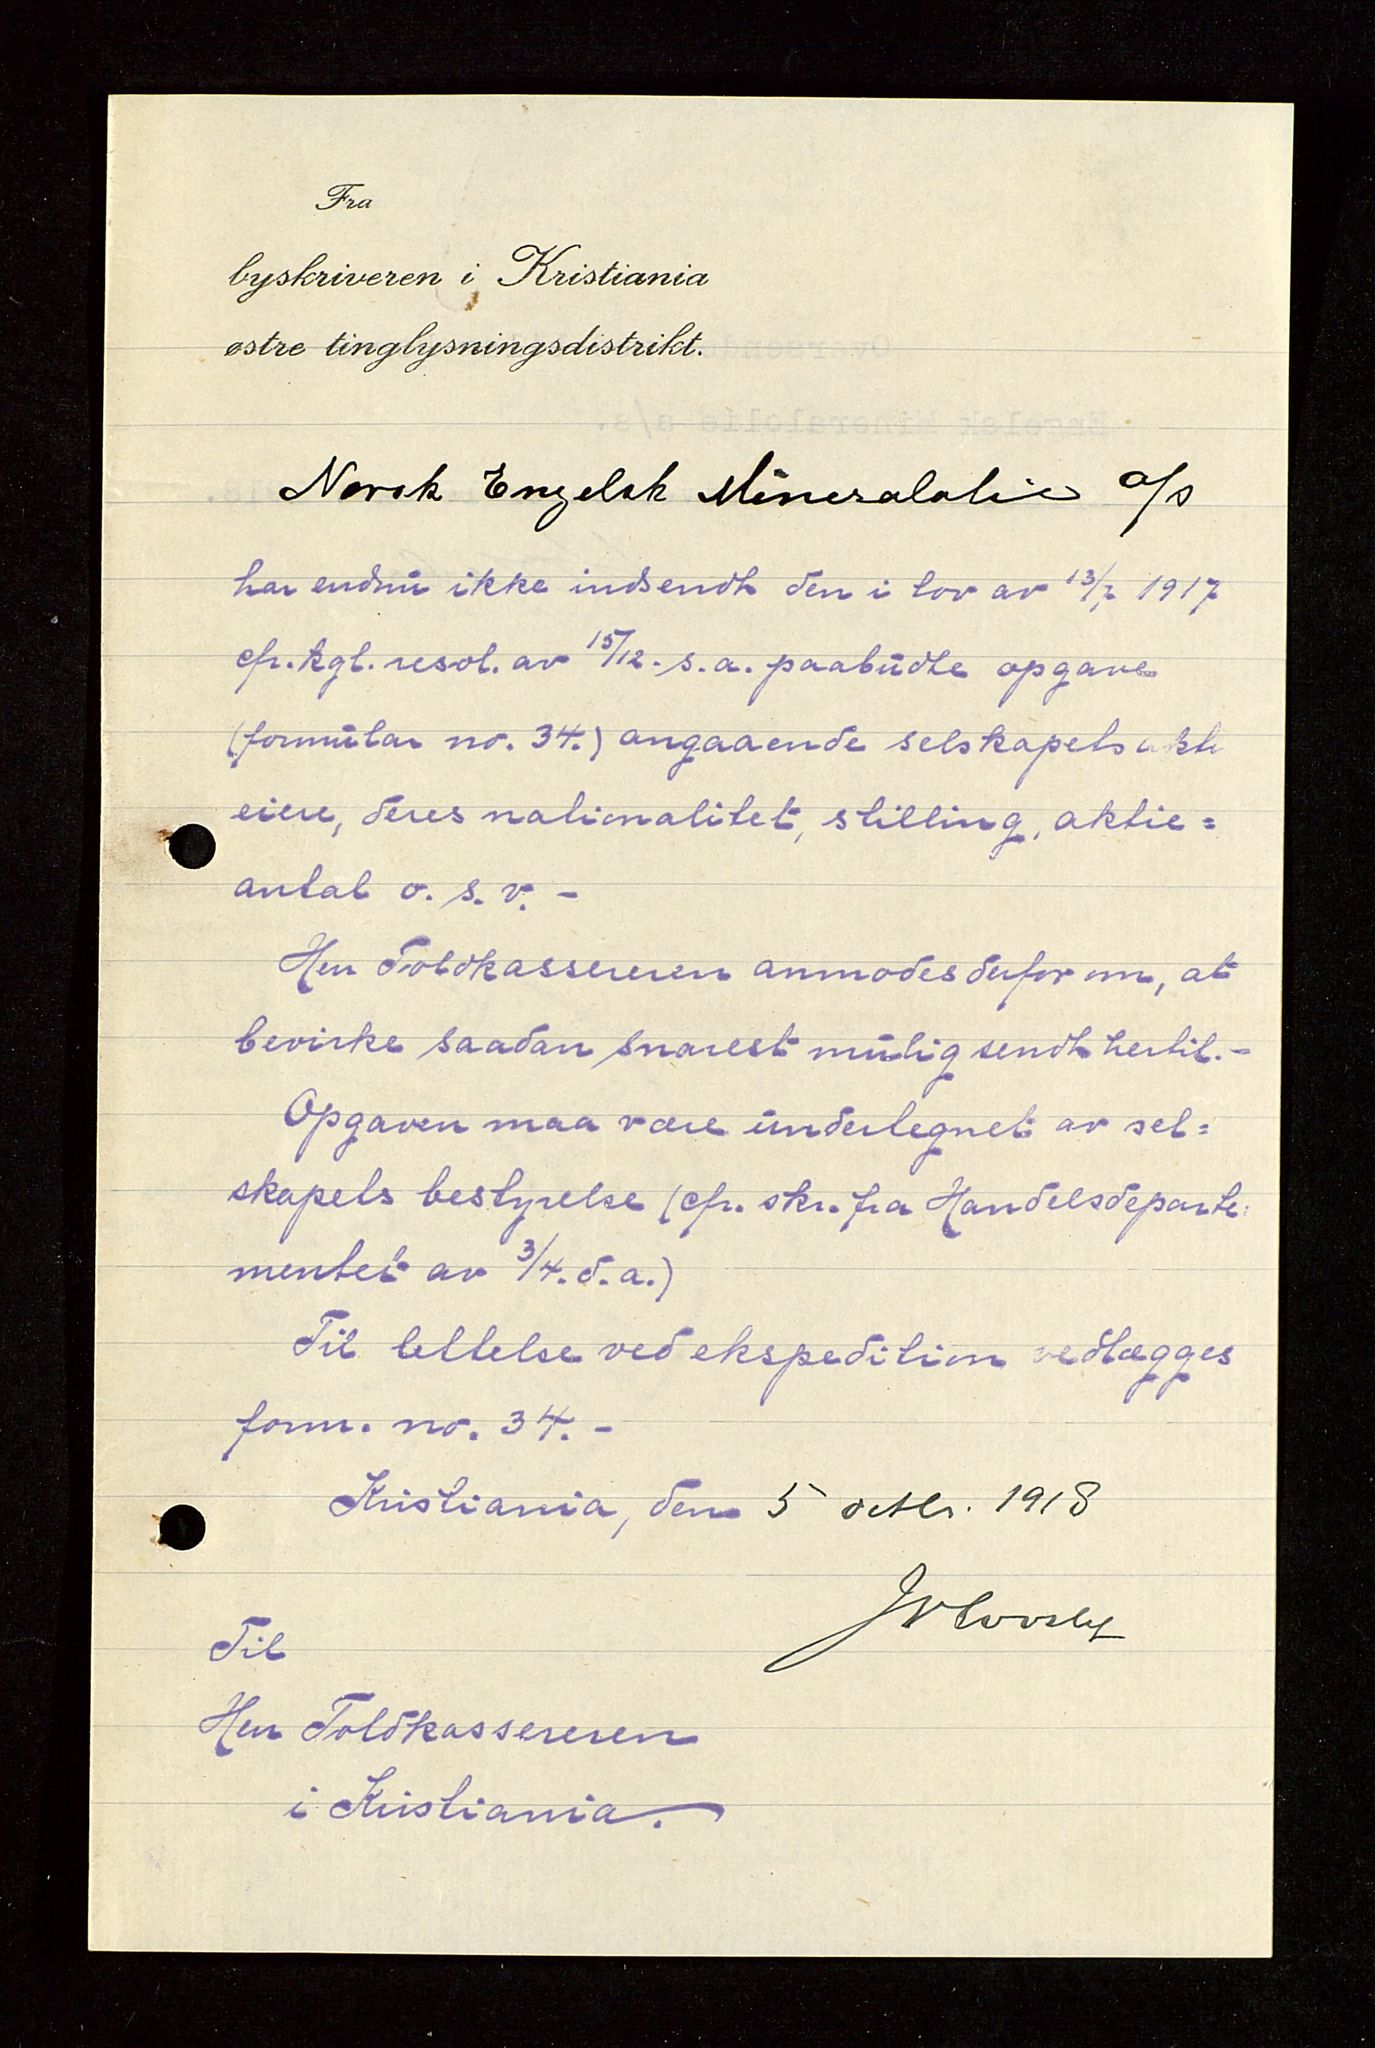 Fra
byskriveren i Kristiania
østre tinglysningsdistrikt.
Norsk Engelsk Mineralolie a/s
har endnu ikke indsendt den i lov av 13/7 1917
cfr. kgl. resol. av 15/12. s. a. paabudte opgave
(formular no. 34.) angaaende selskapets akti
eiere, deres nationalitet, stilling, aktie=
antal o. s. v. -
Herr Toldkassereren anmodes derfor om, at
bevirke saadan snarest mulig sendt hertil. -
Opgaven maa være undertegnet av sel=
skapets bestyrelse (cfr. skr. fra Handelsdeparte=
mentet av 3/4. d. a.)
Til lettelse ved ekspedition vedlægges
form. no. 34. -
Kristiania, den 5 octbr. 1918
Til
Herr Toldkassereren
i Kristiania.